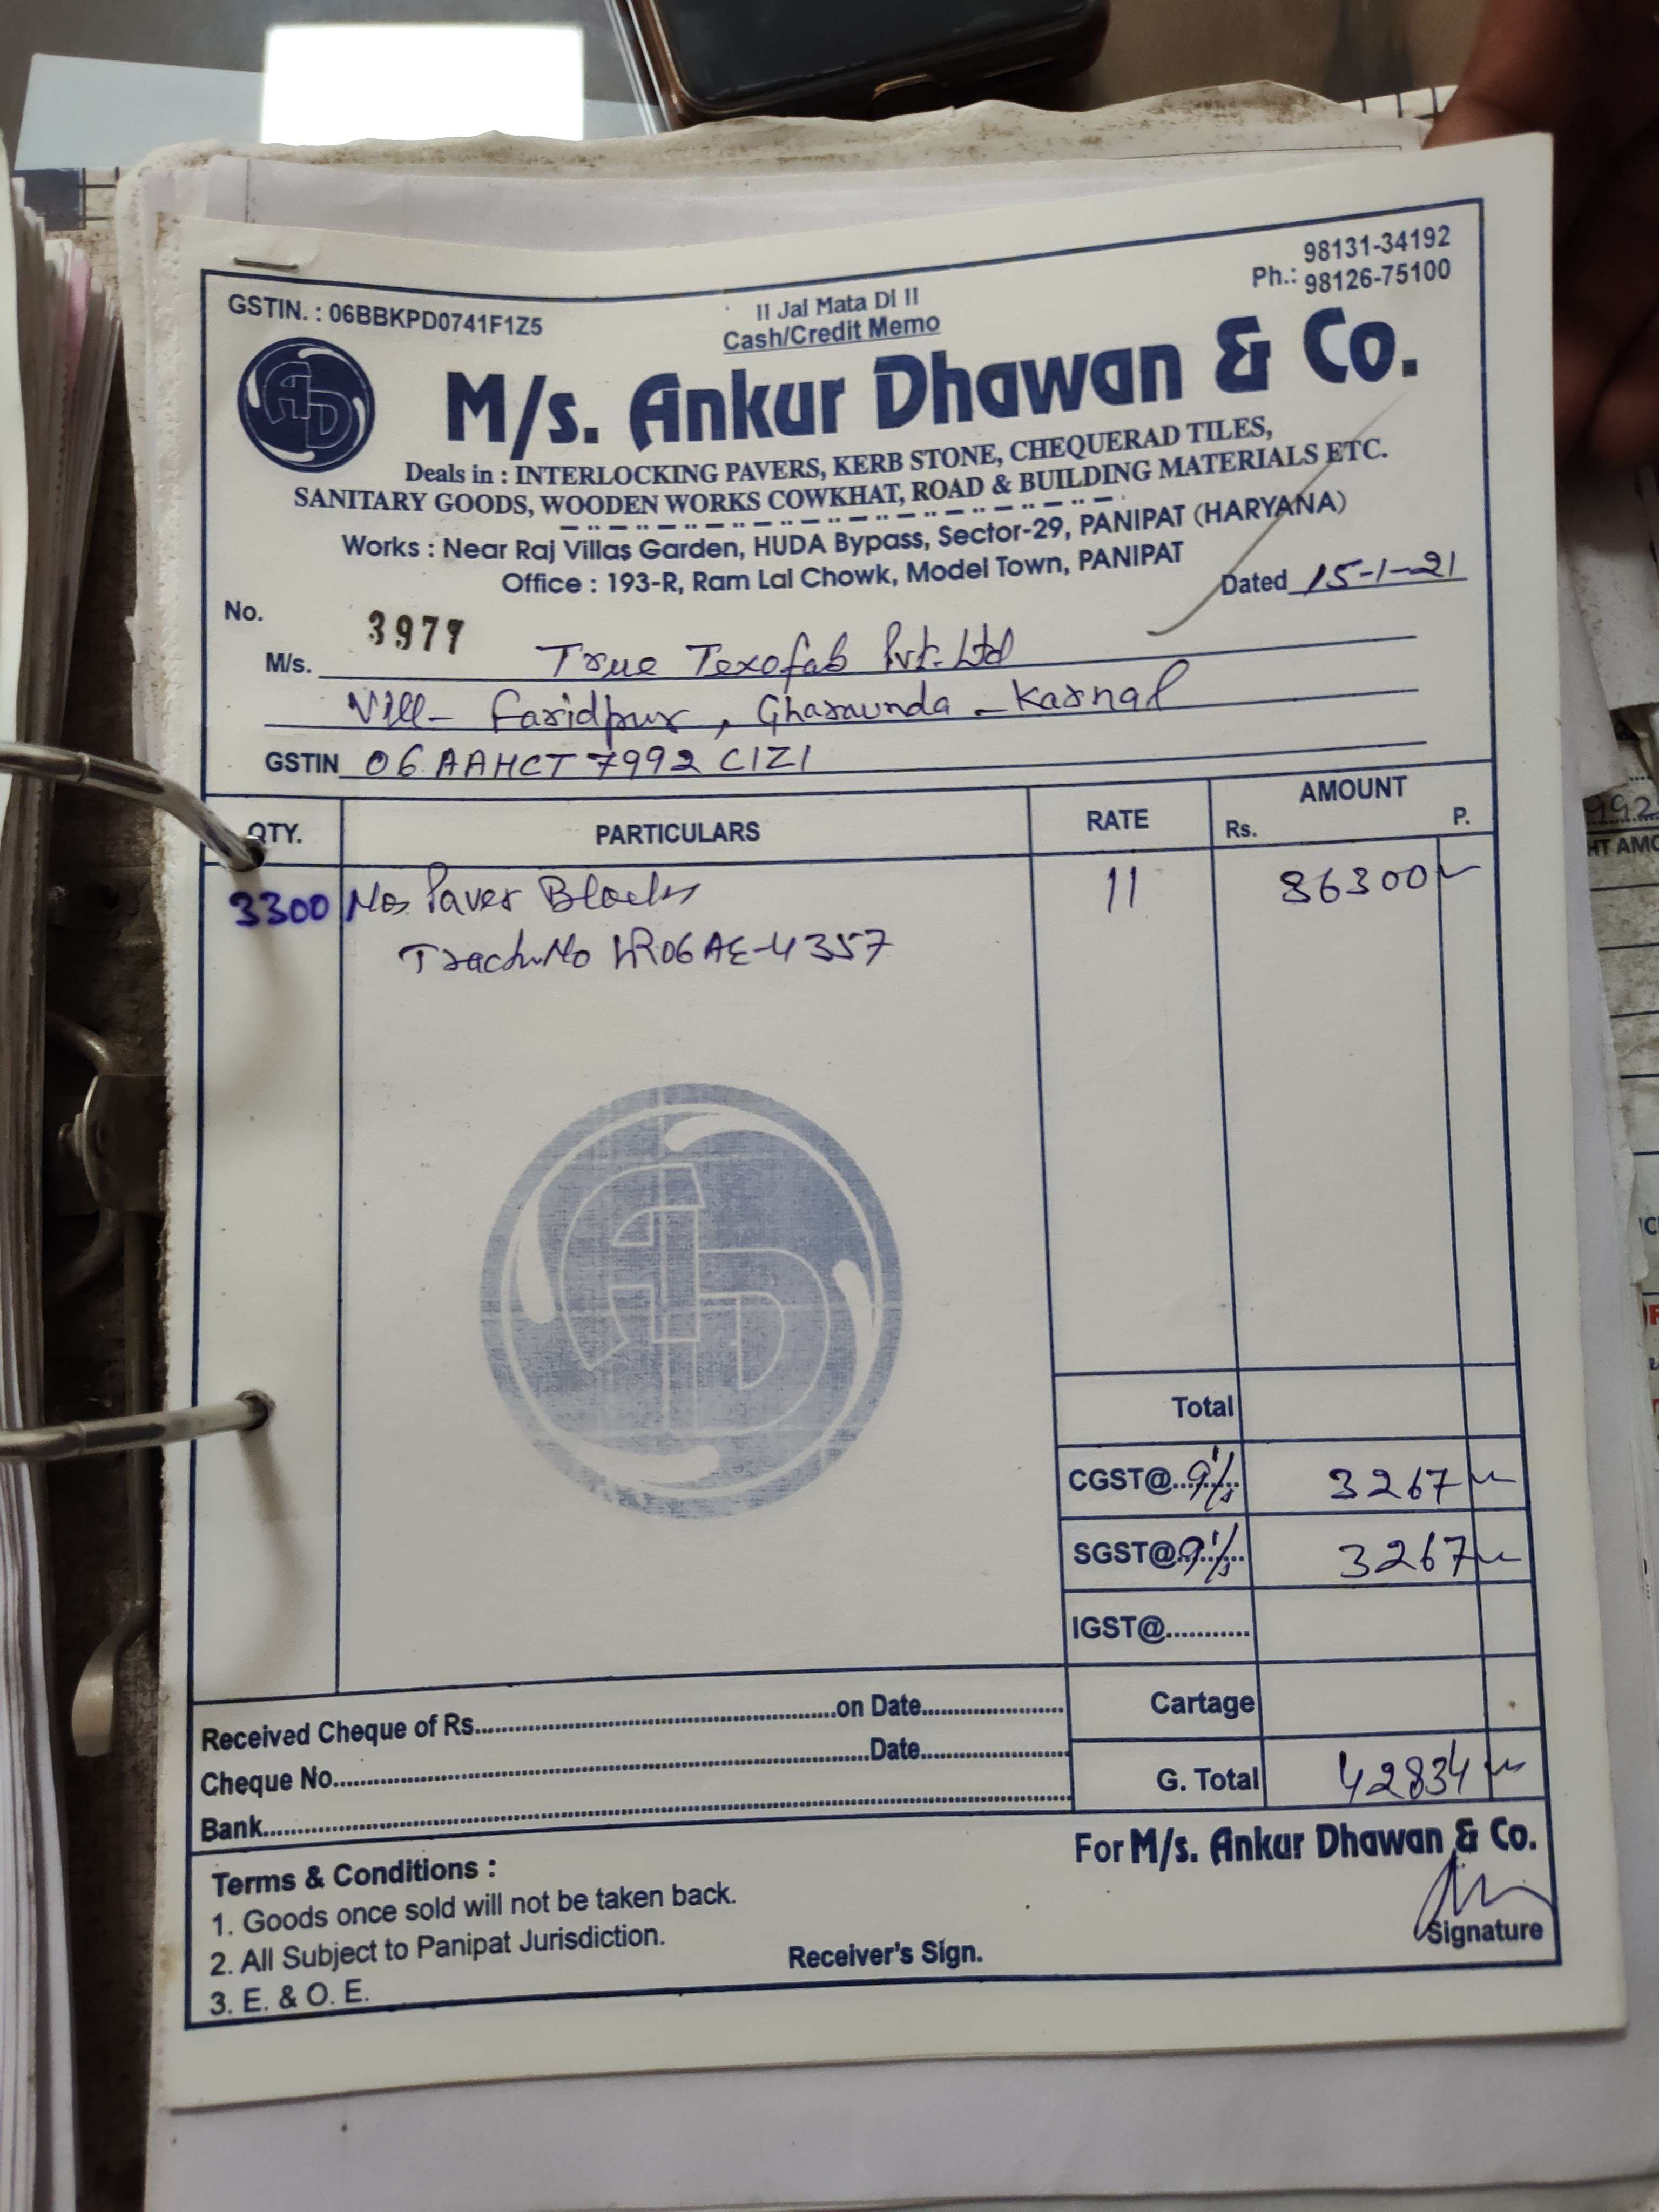 98131-34192
GSTIN. : 06BBKPD0741F1Z5
II Jai Mata Di II
Ph.: 98126-75100
Cash/Credit Memo
AD
M/s. Ankur Dhawan & Co.
Deals in : INTERLOCKING PAVERS, KERB STONE, CHEQUERAD TILES,
SANITARY GOODS, WOODEN WORKS COWKHAT, ROAD & BUILDING MATERIALS ETC.
Works : Near Raj Villas Garden, HUDA Bypass, Sector-29, PANIPAT (HARYANA)
Office : 193-R, Ram Lal Chowk, Model Town, PANIPAT
Dated 15-1-21
No. 3977
M/s. True Texofab Pvt. Ltd
Vill- Faridpur, Gharaunda - Karnal
GSTIN 06AAHCT7992C1Z1
QTY. PARTICULARS RATE AMOUNT
Rs. P.
3300 Nos Paver Blocks 11 36300
HR06AE-4357
AD
Total
CGST@...9%... 3267
SGST@...9%... 3267
IGST@............
Received Cheque of Rs..........on Date..........
Cartage
Cheque No..........Date..........
G. Total 42834
Bank..........
For M/s. Ankur Dhawan & Co.
Terms & Conditions :
1. Goods once sold will not be taken back.
2. All Subject to Panipat Jurisdiction.
3. E. & O. E.
Receiver's Sign.
Signature